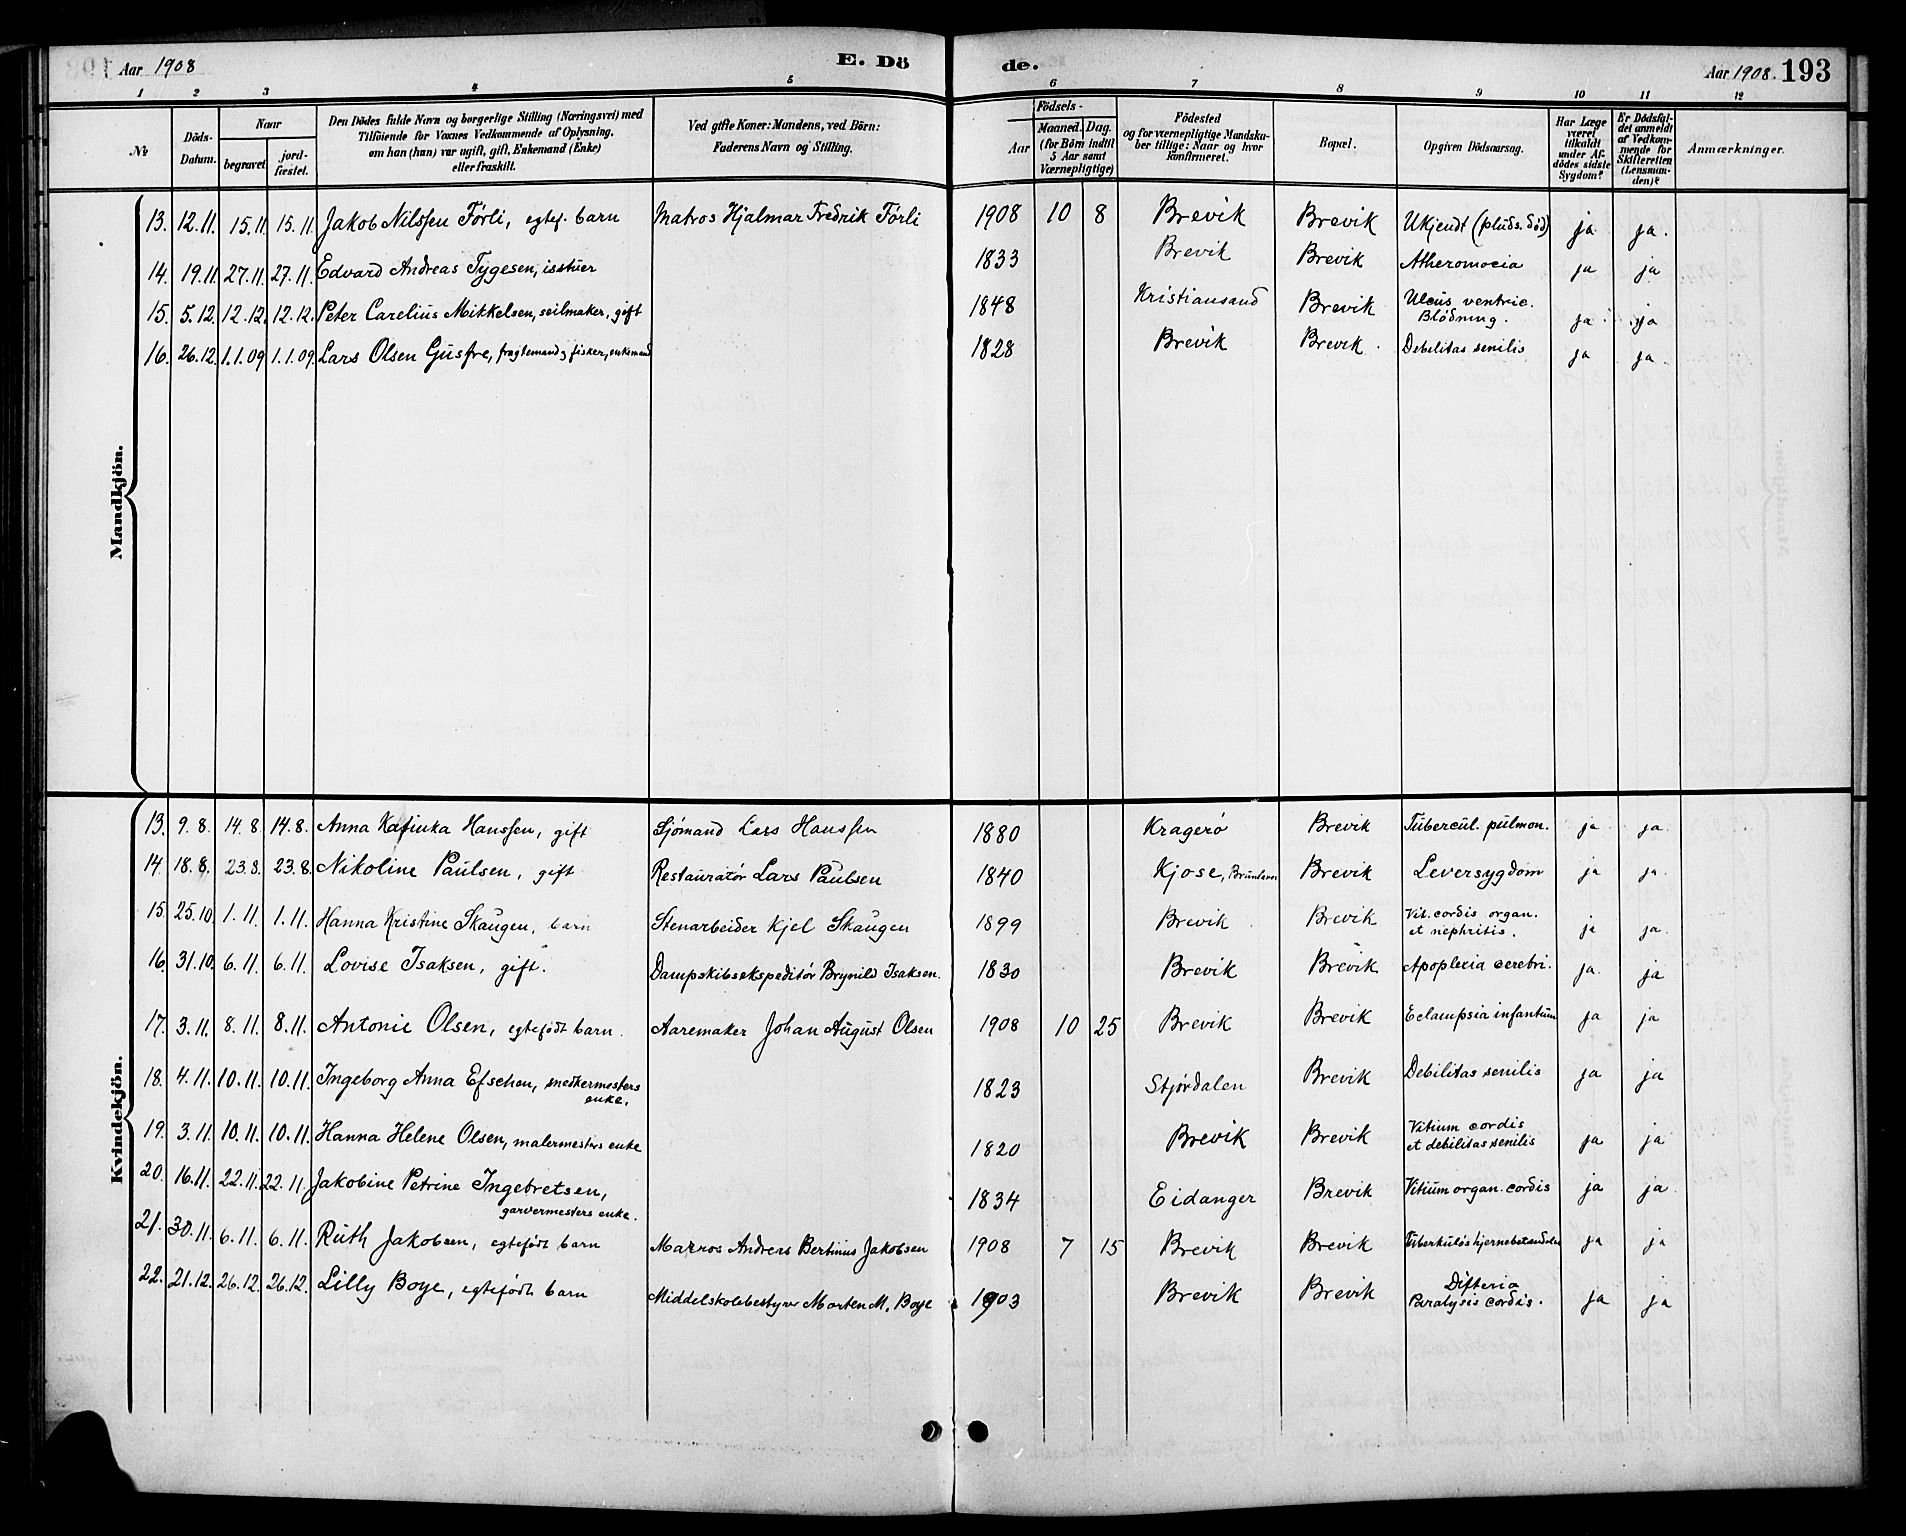 Aar 1908 E. Dö de. Aar 1908. 193
1 2 3 4 5 6 7 8 9 10 11 12
No
Döds-Datum.
Naar
begravet.
jordfæstet.
Den Dödes fulde Navn og borgerlige Stilling (Næringsvei) med
Tilföiende for Voxnes Vedkommende af Oplysning,
om han (hun) var ugift, gift, Enkemand (Enke)
eller fraskilt.
Ved gifte Koner: Mandens, ved Börn:
Faderens Navn og Stilling.
Födsels-
Aar
Maaned. Dag.
(for Börn indtil
5 Aar samt
Værnepligtige)
Födested
og for værnepligtige Mandska-
ber tillige: Naar og hvor
konfirmeret.
Bopæl.
Opgiven Dödsaarsag.
Har Læge
været
tilkaldt
under Af-
dödes sidste
Sygdom?
Er Dödsfal-
det anmeldt
af Vedkom-
mende for
Skifteretten
(Lensman-
den)?
Anmærkninger.
Mandkjön.
13. 12.11. 15.11. 15.11. Jakob Nilssen Förli, egtef. barn Matros Hjalmar Fredrik Förli 1908 10 8 Brevik Brevik Ukjendt (pluds. död) ja ja.
14. 19.11. 27.11. 27.11. Edvard Andreas Tygesen, isstuer 1833 Brevik Brevik Atheromocia ja ja
15. 5.12. 12.12. 12.12. Peter Carelius Mikkelsen, seilmaker, gift 1848 Kristiansand Brevik Ulcus ventric.
Blödning. ja ja
16. 26.12. 1.1.09 1.1.09. Lars Olsen Gusfre, fragtemand, fisker, enkemand 1828 Brevik Brevik. Debilitas senilis ja ja.
Kvindekjön.
13. 9.8. 14.8. 14.8. Anna Kafinka Hanssen, gift Sjömand Lars Hanssen 1880 Kragerø Brevik Tubercul. pulmon. ja ja.
14. 18.8. 23.8. 23.8. Nikoline Paulsen, gift Restauratør Lars Paulsen 1840 Kjose, Brunlanes Brevik Leversygdom ja ja.
15. 25.10. 1.11. 1.11. Hanna Kristine Skaugen, barn Stenarbeider Kjel Skaugen 1899 Brevik Brevik Vit. cordis organ.
et nephritis. ja ja.
16. 31.10. 6.11. 6.11. Lovise Isaksen, gift. Dampskibsekspeditör Brynild Isaksen. 1830 Brevik Brevik Apoplexia cerebri. ja. ja
17. 3.11. 8.11. 8.11. Antonie Olsen, egtefödt barn. Aaremaker Johan August Olsen 1908 10 25 Brevik Brevik Eclampsia infantum ja ja
18. 4.11. 10.11. 10.11. Ingeborg Anna Efschen, snedkermesters
enke. 1823 Stjørdalen Brevik Debilitas senilis ja ja
19. 3.11. 10.11. 10.11. Hanna Helene Olsen, malermesters enke 1820 Brevik Brevik Vitium cordis
et debilitas senilis ja ja
20. 16.11. 22.11. 22.11. Jakobine Petrine Ingebretsen,
garvermesters enke. 1834 Eidanger Brevik Vitium organ. cordis ja ja
21. 30.11. 6.11. 6.11. Ruth Jakobsen, egtefødt barn Matros Andreas Bertinius Jakobsen 1908 7 15 Brevik Brevik Tiberkuløs hjernebetændelse ja ja
22. 21.12. 26.12. 26.12. Lilly Boye, egtefødt barn Middelskolebestyrer Morten M. Boye 1903 Brevik Brevik Difteria
Paralysis cordis. ja ja